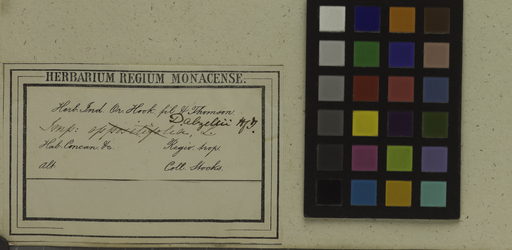 HERBARIUM REGIUM MONACENSE.
Herb. Ind. Or. Hook. fil. & Thomson.
Dalzellii H.f.T.
Imp: oppositifolia, L.
Hab. Concan &c. Regio trop.
Alt. Coll. Stocks.